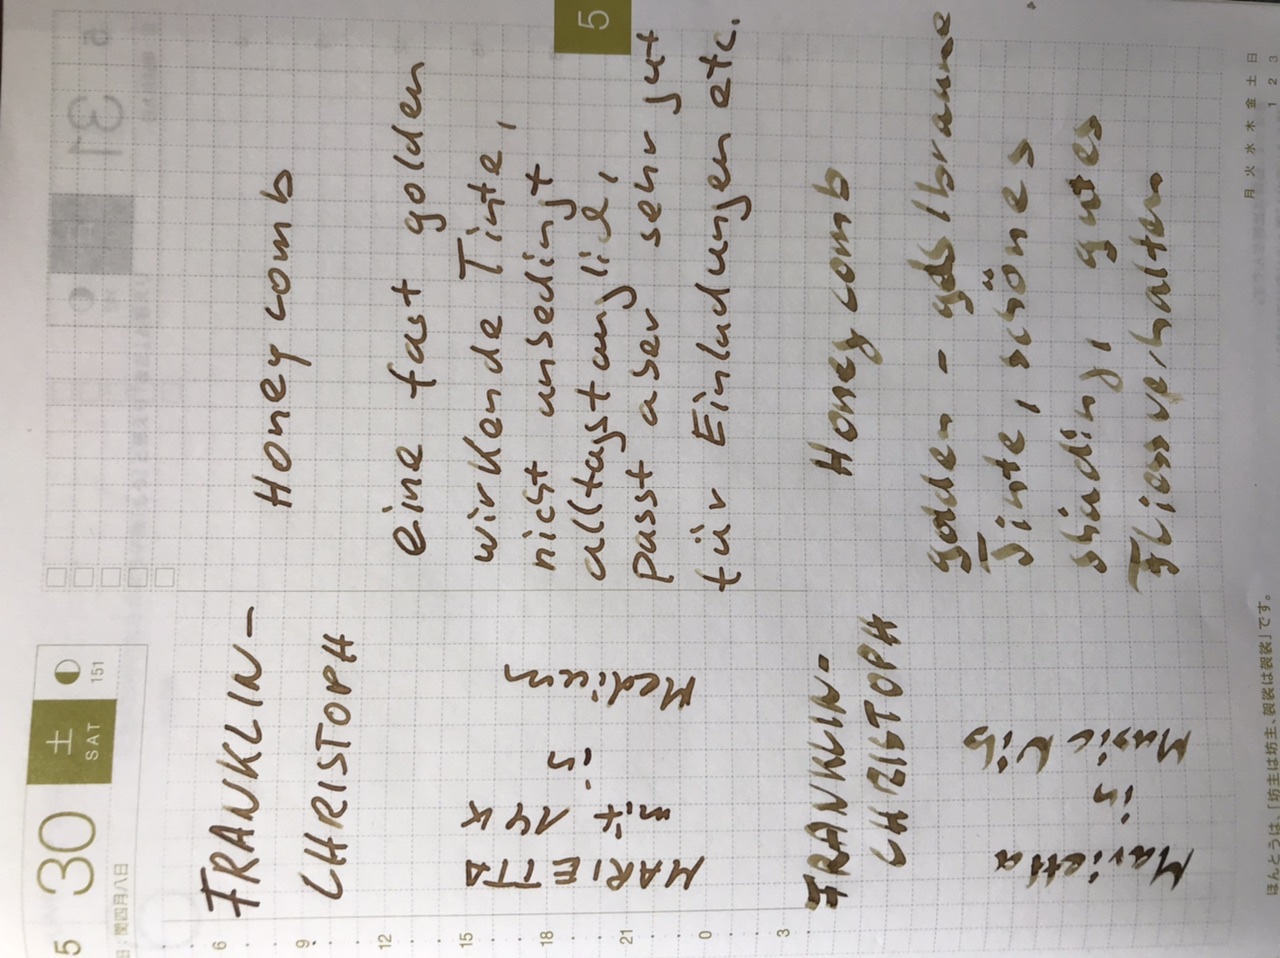 5
30
土
SAT
151
日:閏四月八日
FRANKLIN-
CHRISTOPH
Honeycomb
eine fast golden
wirkende Tinte,
nicht unbedingt
alltagstauglich,
passt aber sehr gut
für Einladungen etc.
MARIETTA
mit
14 K
is.
FRANKLIN-
CHRISTOPH
Honeycomb
golden - gelbbraune
Tinte, schönes
shading, gutes
Fliessverhalten
Marietta
is
Music Nib
6
9
12
15
18
21
0
3
5
月 火 水 木 金 土 日
1 2 3
ほんとうは、「坊主は坊主、袈裟は袈裟」です。